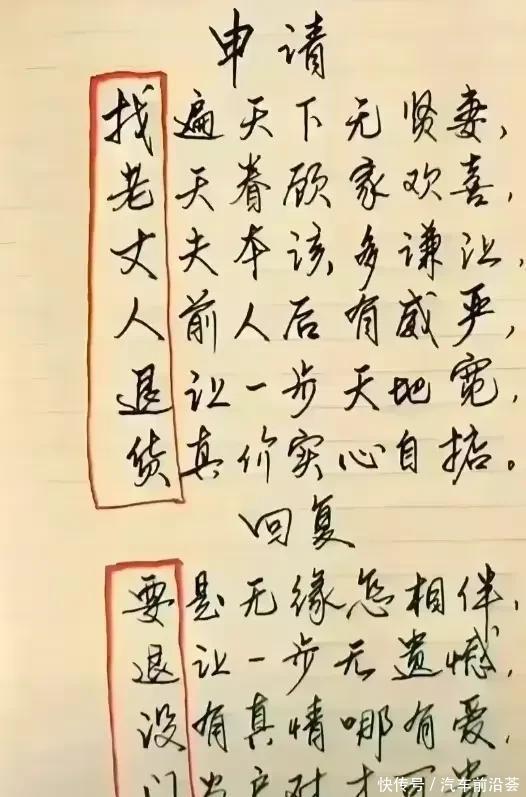 申请
找遍天下无贤妻,
老天眷顾家欢喜,
丈夫本该多谦让,
人前人后有威严,
退让一步天地宽,
货真价实心自掂。
回复
要是无缘怎相伴,
退让一步无遗憾,
没有真情哪有爱,
门当户对才
快传号 / 汽车前沿荟